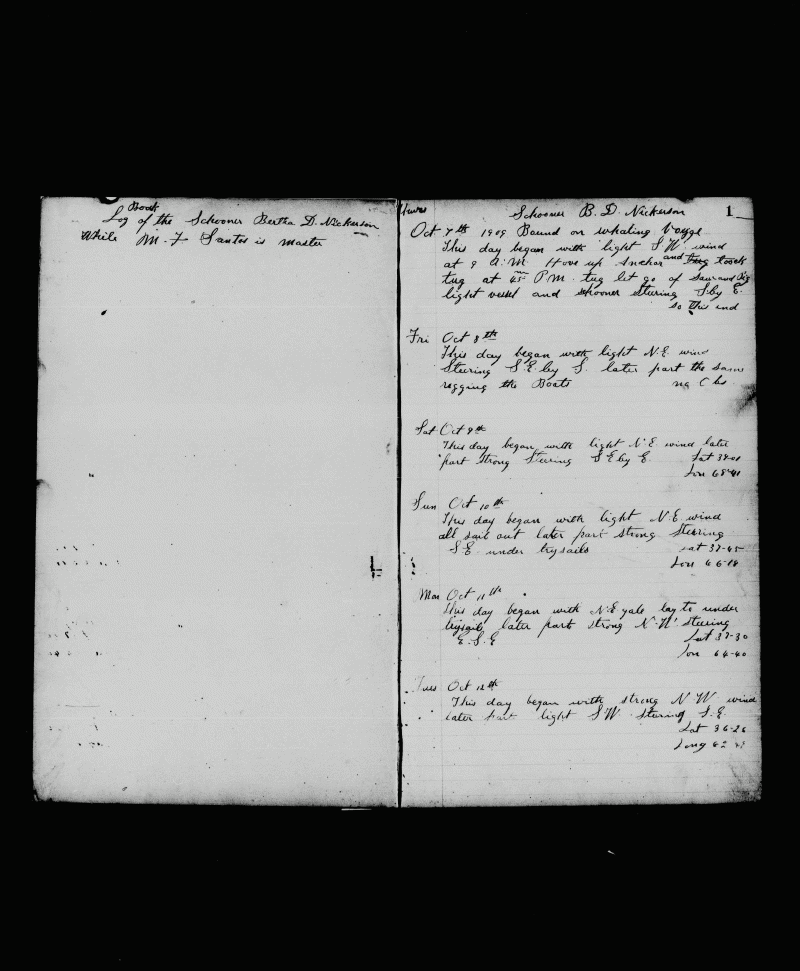 Log Book of the Schooner Bertha D. Nickerson
While M. F. Santos is master
Thurs Schooner B. D. Nickerson 1
Oct 7th 1909 Bound on whaling Voyge
This day began with light S W wind
at 9 A.M. Hove up Anchor and took
tug at 45 P.M. tug let go of Sow and Pig
light vessel and schooner sturing S by E.
so this end
Fri Oct 8th
This day began with light N.E. wind
Steering S.E. by S. later part the same
regging the Boats
Sat Oct 9th
This day began with light N.E. wind later
part strong Steering S E by E. Lat 39-01
Lon 68-41
Sun Oct 10th
This day began with light N.E. wind
all sail out later part strong Steering
S.E. under trysails Lat 37-45
Lon 66-18
Mon Oct 11th
This day began with N.E gale lay to under
trysails later part strong N-W steering
E.S.E Lat 37-30
Lon 64-40
Tues Oct 12th
This day began with strong N W wind
later part light S W sturing S.E.
Lat 36-26
Long 62